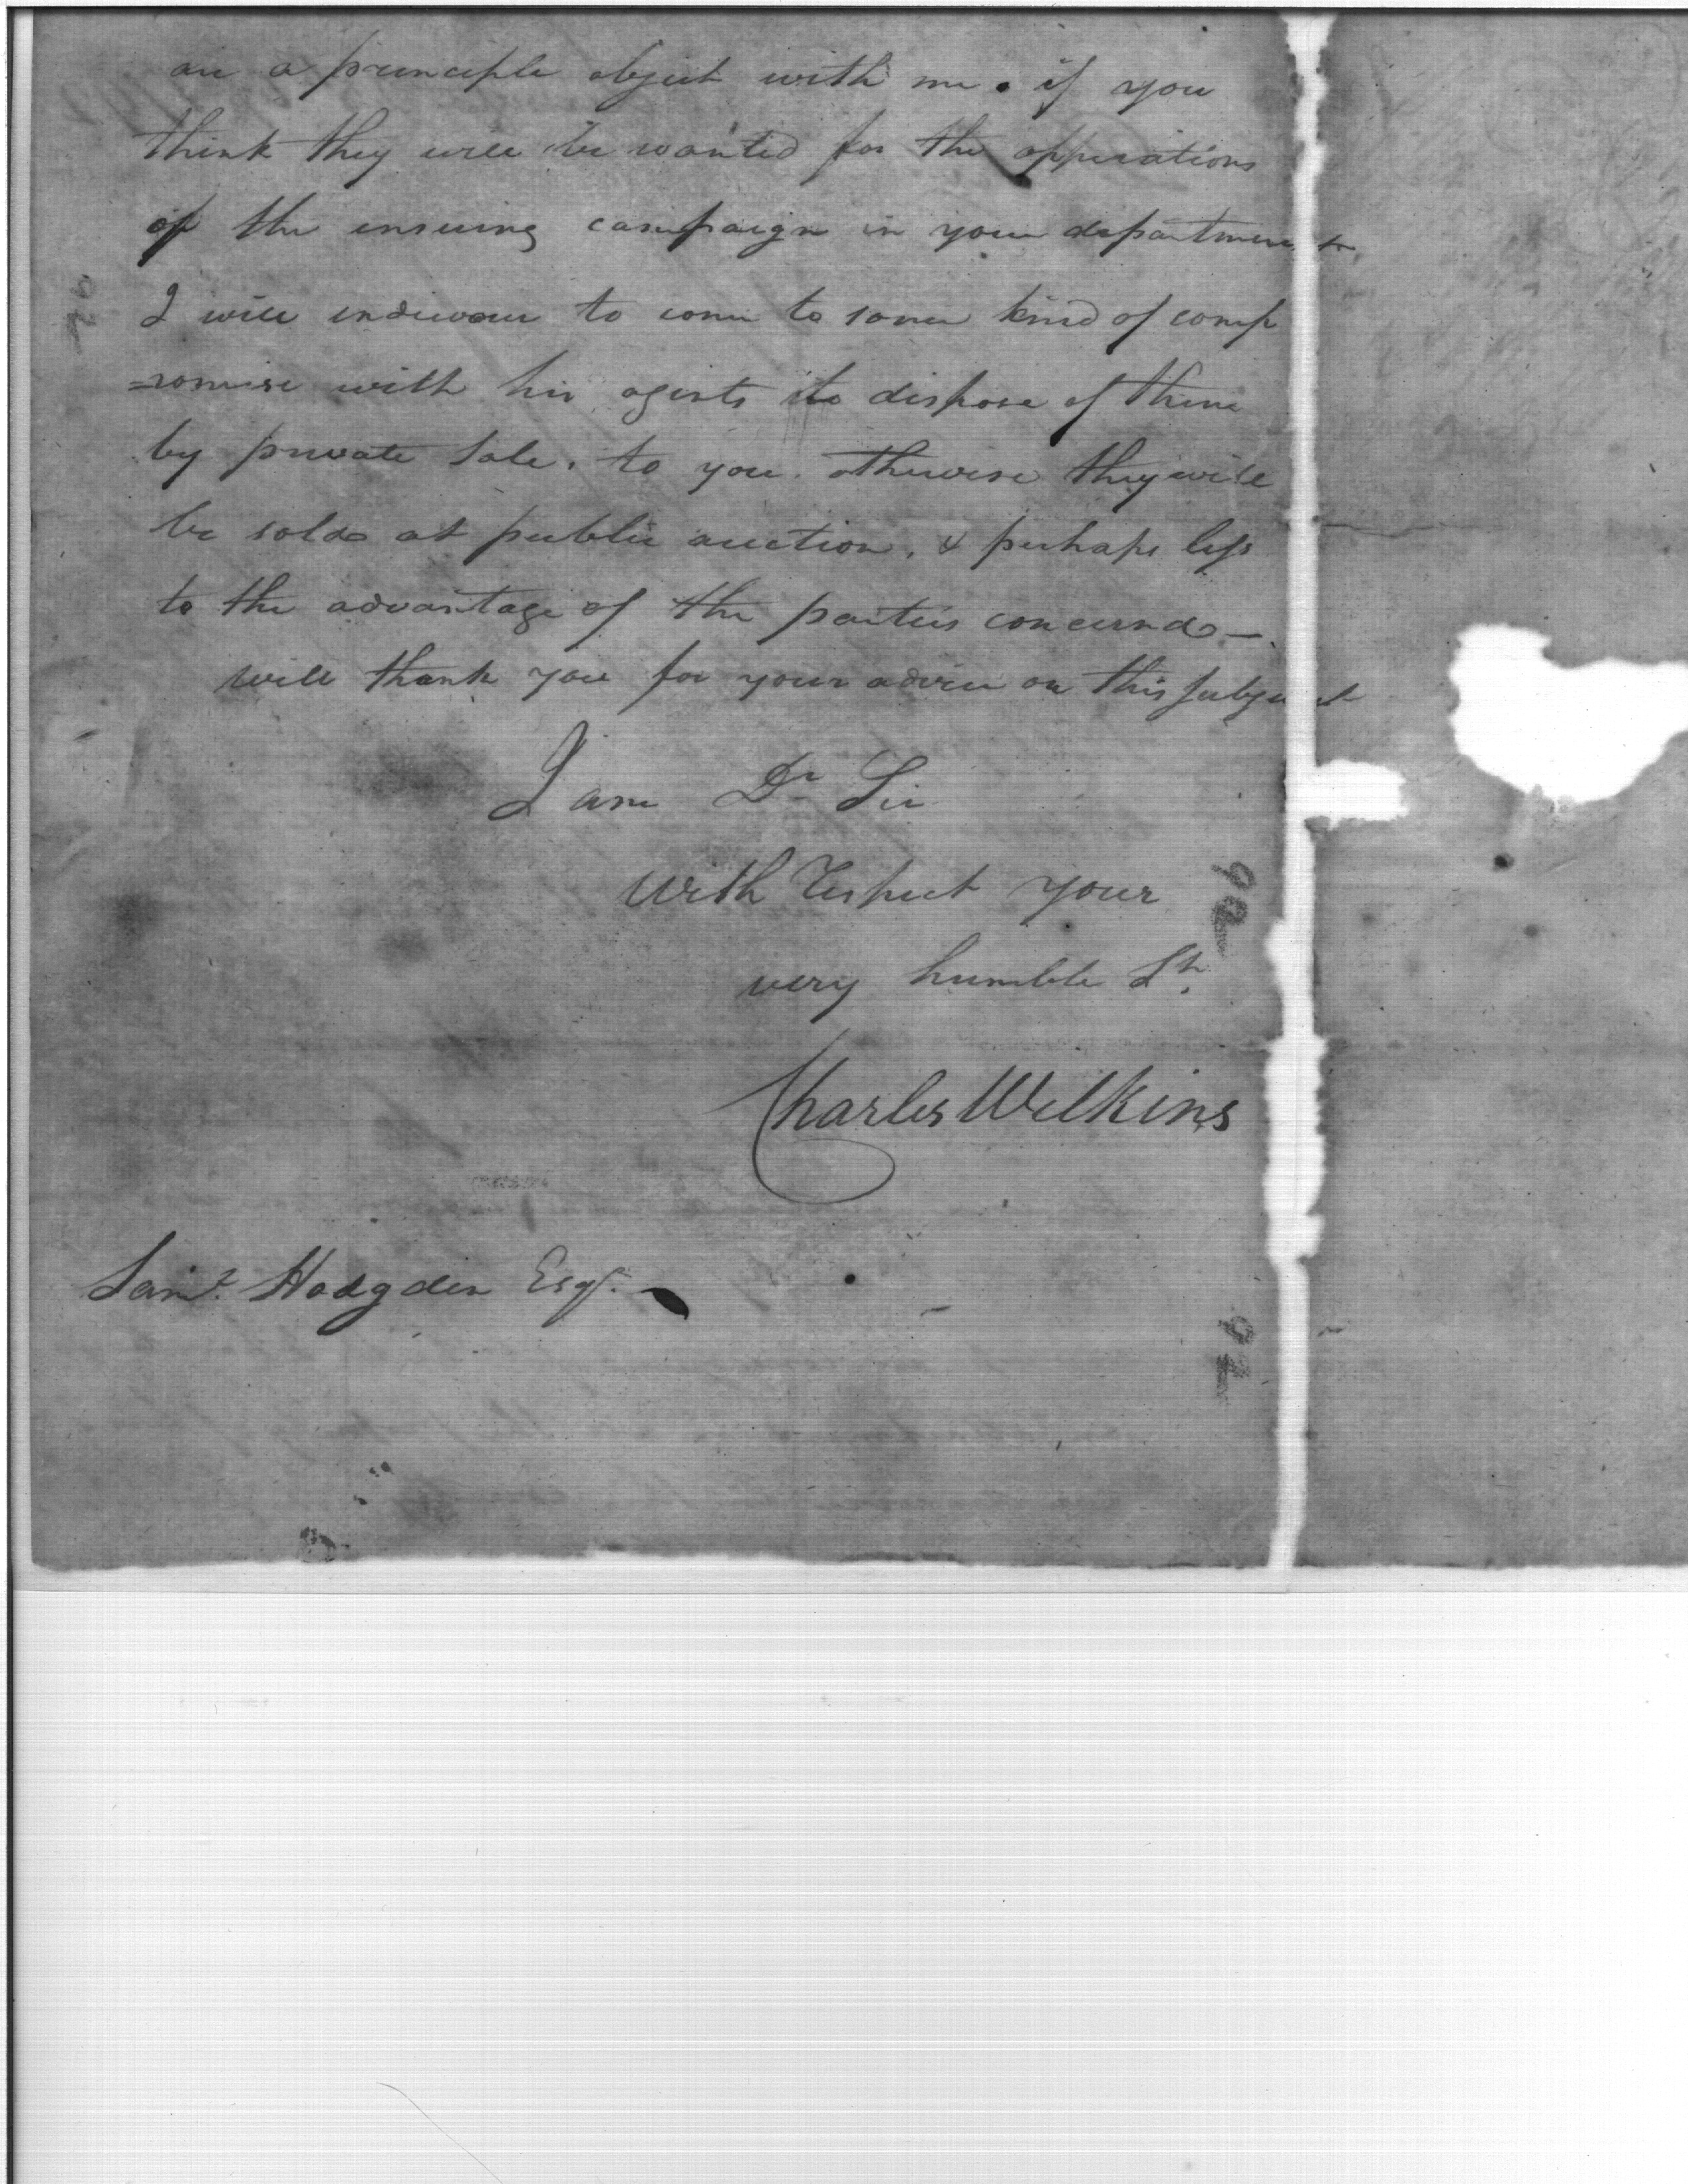 are a principle object with me. if you
think they will be wanted for the opperations
of the ensuing campaign in your department
I will endivour to come to some kind of comp
=romise with his agents to dispose of them
by private sale. to you. otherwise they will
be sold at public auction. & perhaps less
to the advantage of the parties concernd —
will thank you for your advice on this subject
I am Dr Sir
with respect your
very humble St.
Charles Wilkins
Saml. Hodgden Esqr.
92
92
92